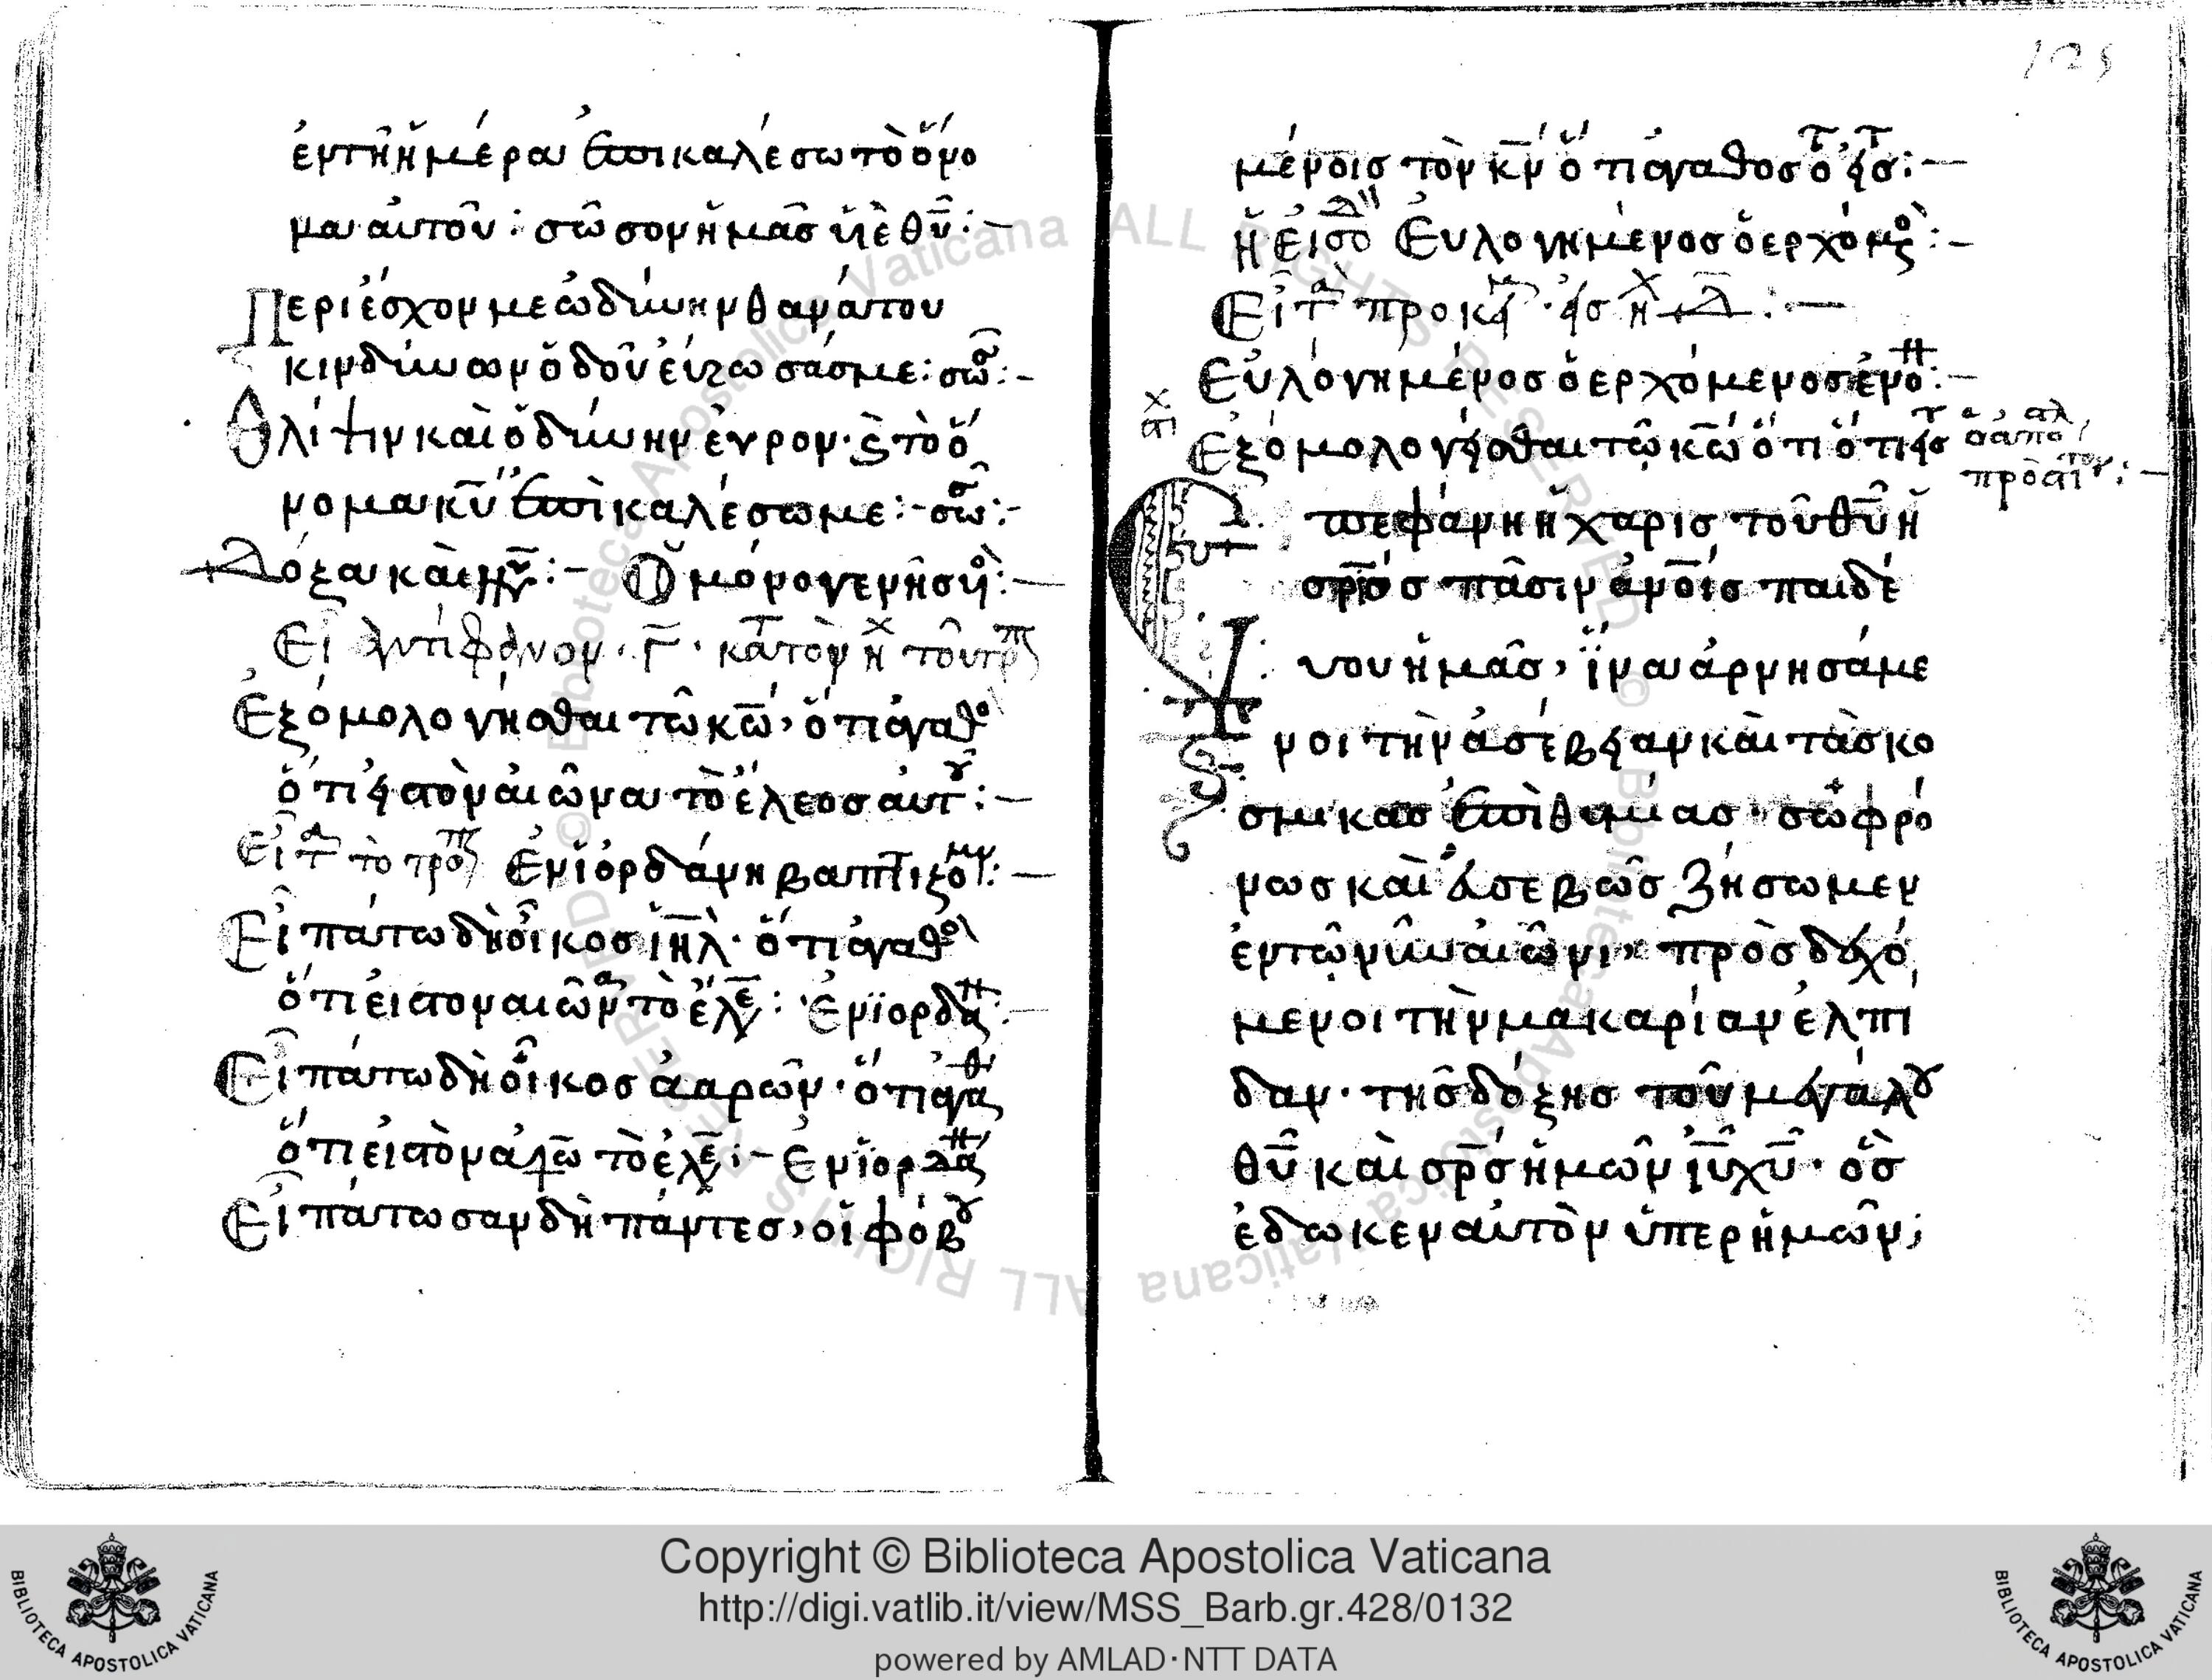 ἐν τῆ ἡμέρα ἐπικαλέσω τὸ ὄνο
μα αὐτοῦ: σῶσον ἡμᾶς υἱὲ θῦ:-
Περιέσχον με ὠδύνην θανάτου
κινδύνων ὁδοῦ εὕρωσάσμε: σῶ:-
Θλίψιν καὶ ὀδύνην εὗρον· ς τὸ ὄ
νομα κῦ ἐπικαλέσωμε:- σῶ:-
Δόξα καὶ νῦ:- Ὁ μόνογενῆς υἱὸ:-
Εἰ ἀντίφωνον· Γ· κατ τὸν ἦχ τοῦ τρπ
Ἐξομολογήσθαι τῶ κῶ, ὅτι ἀγαθο
ὅτι εἰς τὸν αἰῶνα τὸ ἔλεος αὐτοῦ:-
Εἶτα τὸ τροπ Ἐν ἰορδάνη βαπτιζομ:-
Εἰπάτω δὴ οἶκος ἰηλ· ὅτι ἀγαθο
ὅτι εἰς τον αιῶνα τὸ ἔλε: Ἐν ϊορδα:-
Εἰπάτω δὴ οἶκος ἀαρῶν· ὅτι ἀγαθ
ὅτι εἰς τὸν αἰῶ τὸ ἐλε:- Ἐν ἰορδα
Εἰπάτωσαν δὴ πάντες, οἱ φόβου
125
μένοις τὸν κν ὅτι ἀγαθος ὅτ εἰς:-
ἡ εἰσοδ Ευλογημένος ὁ ερχόμος:-
Εἶτα προκ εἰς ἦχ Δ:-
Εὐλόγημένος ὁ ερχόμενος ἐν ὀ:-
Ἐξομολογεῖσθαι τῶ κῶ ὅτι ὅτι εἰς
ὁ ἀπο
προς τιτον:-
Ἐπεφάνη ἡ χαρις τοῦ θῦ ἡ
σρίος πᾶσιν ἀνοῖς παιδέ
υου ἡμᾶς, ἵνα ἀρνησάμε
νοι τὴν ἀσέβειαν καὶ τὰς κο
σμικας ἐπιθυμίας· σωφρό
νως καὶ εὐσεβῶς ζήσωμεν
ἐν τῶ νῦν αἰῶνι, προσδεχό
μενοι τὴν μακαρίαν ἐλπι
δαν· τῆς δόξης τοῦ μεγάλου
θῦ καὶ σρς ἡμῶν ἰῦ χῦ· ὃς
ἐδωκεν αὐτὸν ὑπερ ἡμῶν;
Copyright © Biblioteca Apostolica Vaticana
http://digi.vatlib.it/view/MSS_Barb.gr.428/0132
powered by AMLAD·NTT DATA
BIBLIOTECA APOSTOLICA VATICANA
BIBLIOTECA APOSTOLICA VATICANA